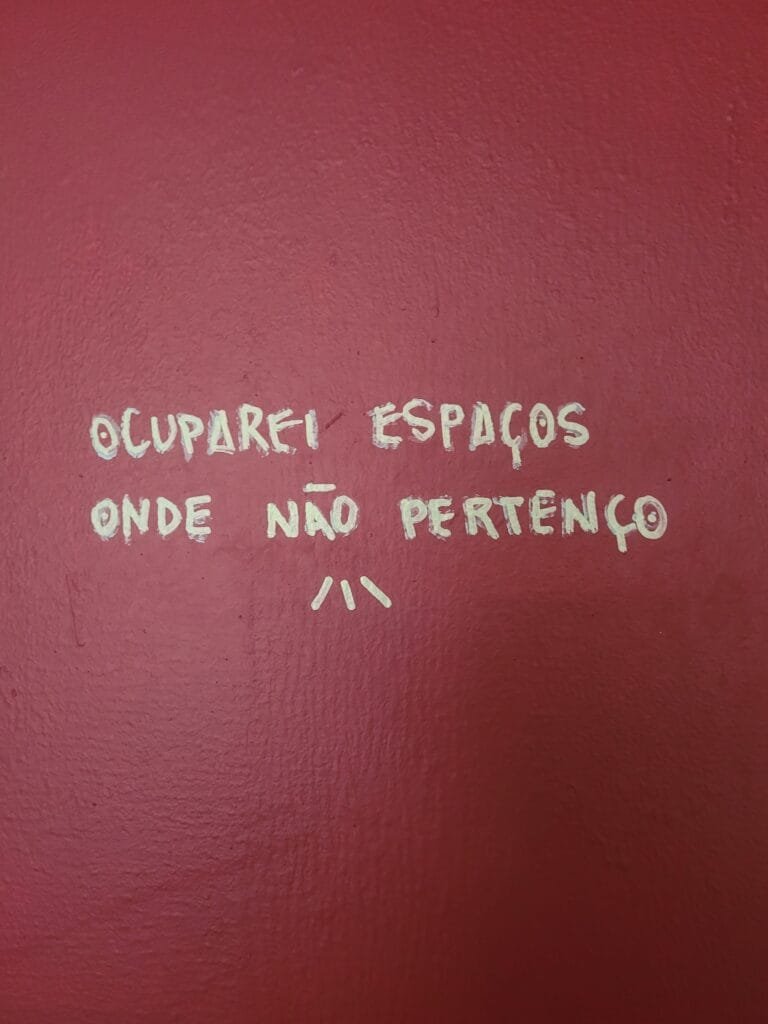 OCUPAREI ESPAÇOS
ONDE NÃO PERTENÇO